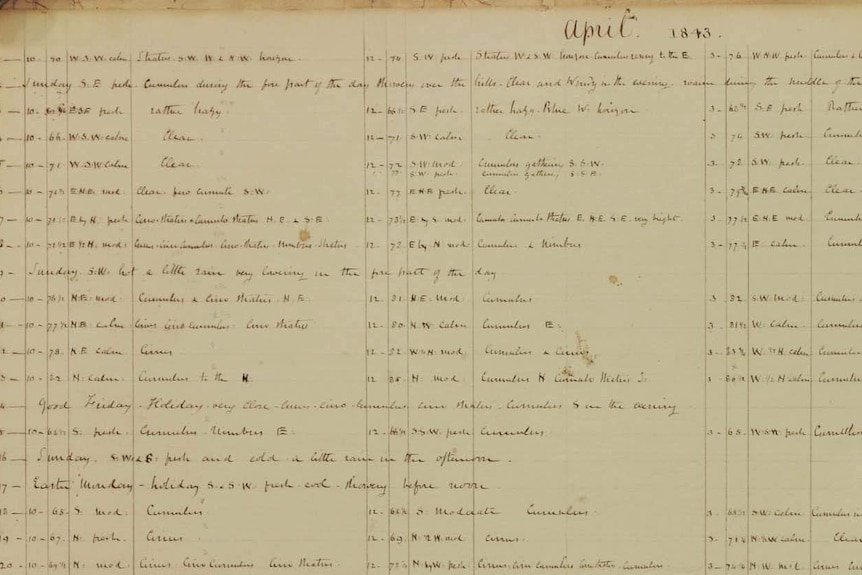 April. 1843.
10 - 70 W.S.W calm Stratus S.W. W & N.W. horizon. 12 - 74 S.W. fresh Stratus W & S.W. horizon Cumulus rising to the E 3 - 76 W.N.W. fresh Cumulus &
Sunday S.E fresh. Cumulus during the fore part of the day showery over the hills. Clear and windy in the evening. during the middle of the
10 - E.S.E fresh rather hazy. 12 - 66½ S.E fresh. rather hazy. Blue W. horizon 3 - 68½ S.E fresh Rather
10 - 66. W.S.W. calm Clear. 12 - 71. S.W. calm Clear. 3 74 S.W. fresh. Cumul
10 - 71. W.S.W calm Clear. 12 - 72 S.W. mod Cumulus gathering S.S.W. 3. 78 S.W. fresh. Clear.
77 S.W. fresh. Cumulus gathering S.S.E.
10 - 71½ E.N.E mod Clear. few cumuli S.W. 12. 77 E.N.E fresh. Clear. 3 - 79½ E.N.E calm Clear
7 - 10 - 71½ E by N. fresh Cirro-Stratus & Cumulo Stratus N.E. & S.E. 12 - 73½ E by S mod Cumulo Stratus E. N.E. S.E. very bright. 3 - 77½ E.N.E mod Cumul
10 - 71½ E ½ N. mod. Cirrus. Cirro Cumulus. Cirro Stratus. Nimbus. Stratus 12 - 78 E by N mod Cumulus & Nimbus 3 - 77½ E. calm Cumul
Sunday. S.W. hot a little rain very lowering in the fore part of the day
10 - 76½ N.E. mod. Cumulus & Cirro Stratus. N.E. 12. 81. N.E. Mod Cumulus 3 82 S.W. Mod. Cumulus
10 - 77½ N.E calm Cirrus Cirro Cumulus. Cirro Stratus 12. 80. N.W. calm Cumulus E. 3. 81½ W. calm. Cumulus
10 - 78. N.E calm Cirrus 12. 82. W by N. mod Cumulus & Cirrus. 3 83½ W. ½ N. calm Cumulus
10 - 82. N. calm. Cumulus to the N. 12 85. N. mod Cumulus N Cumulo Stratus S. 3 - 86½ W. ½ N calm Cumulus
Good Friday - Holiday - very close. Cirrus - Cirro-Cumulus Cirro Stratus. Cumulus S in the evening
10 - 62½ S. fresh. Cumulus. Nimbus E. 12 - 66½ S.S.W. fresh Cumulus. 3 - 65. W.S.W. fresh
16 - Sunday. S.W & S. fresh and cold a little rain in the afternoon.
17 - Easter Monday - holiday S. & S.W. fresh - cool - showery before noon
10 - 65. S. mod. Cumulus. 12 68½ S. Moderate Cumulus 3. 68½ S.W. calm Cumulus
19 - 10 - 67. N. fresh. Cirrus. 12 - 69. N. ½ W. mod Cirrus. 3. 71½ N. ½ W calm Clear
20 - 10 - 69½ N. mod. Cirrus. Cirro Cumulus Cirro Stratus. 12 - 72½ N. by W. fresh. Cirrus, Cirro Cumulus Cirro Stratus. Cumulus. 3 - N.W. Mod. Cirrus